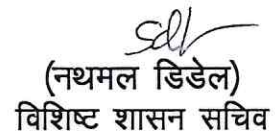 Sd/-
(नथमल डिडेल)
विशिष्ट शासन सचिव